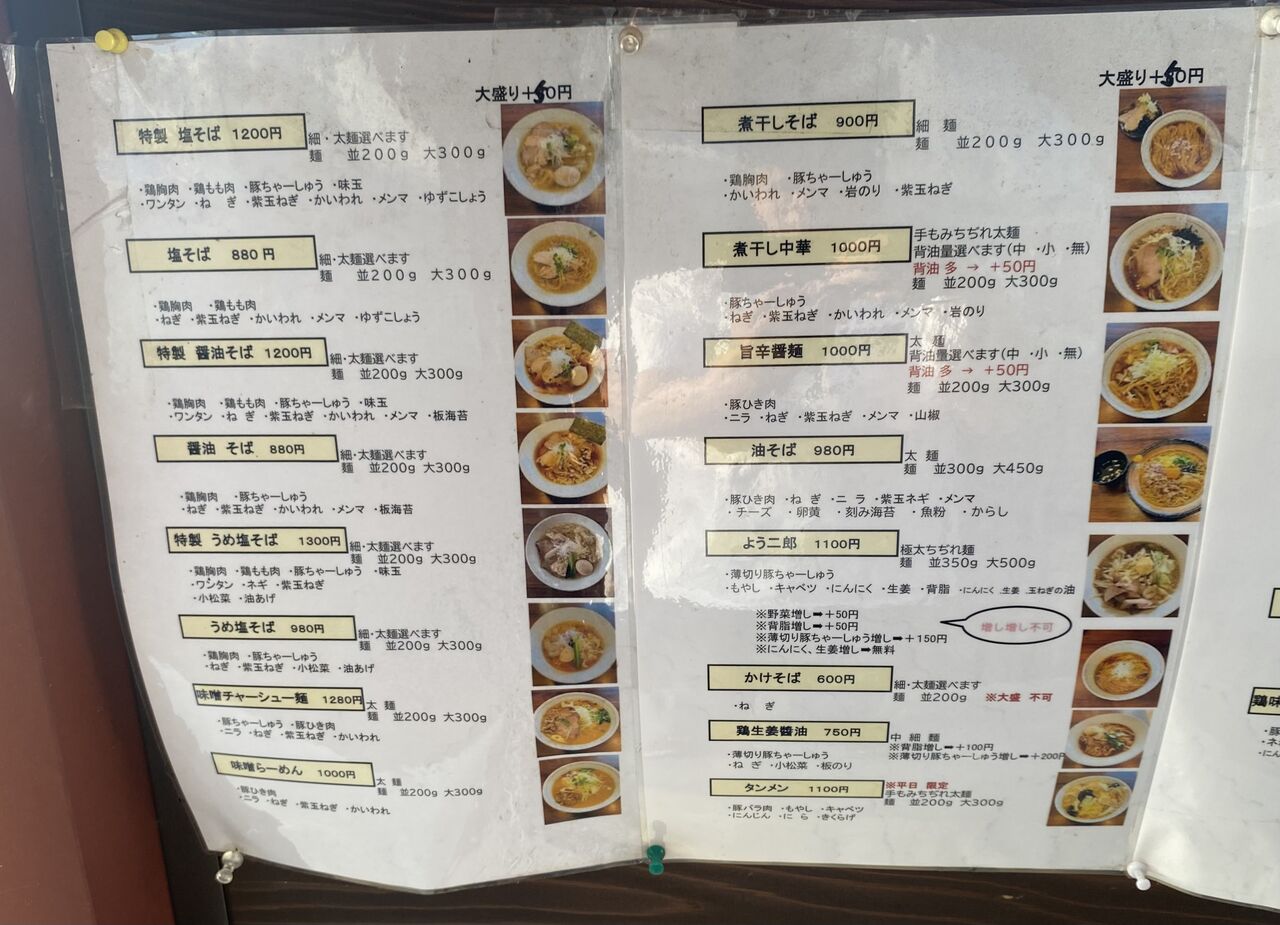 大盛り+50円
特製 塩そば 1200円
細・太麺選べます
麺 並200g 大300g
・鶏胸肉 ・鶏もも肉 ・豚ちゃーしゅう ・味玉
・ワンタン ・ね ぎ ・紫玉ねぎ ・かいわれ ・メンマ ・ゆずこしょう
塩そば 880円
細・太麺選べます
麺 並200g 大300g
・鶏胸肉 ・鶏もも肉
・ねぎ ・紫玉ねぎ ・かいわれ ・メンマ ・ゆずこしょう
特製 醤油そば 1200円
細・太麺選べます
麺 並200g 大300g
・鶏胸肉 ・鶏もも肉 ・豚ちゃーしゅう ・味玉
・ワンタン ・ね ぎ ・紫玉ねぎ ・かいわれ ・メンマ ・板海苔
醤油 そば 880円
細・太麺選べます
麺 並200g 大300g
・鶏胸肉 ・豚ちゃーしゅう
・ねぎ ・紫玉ねぎ ・かいわれ ・メンマ ・板海苔
特製 うめ塩そば 1300円
細・太麺選べます
麺 並200g 大300g
・鶏胸肉 ・鶏もも肉 ・豚ちゃーしゅう ・味玉
・ワンタン ・ネギ ・紫玉ねぎ
・小松菜 ・油あげ
うめ塩そば 980円
細・太麺選べます
麺 並200g 大300g
・鶏胸肉 ・豚ちゃーしゅう
・ねぎ ・紫玉ねぎ ・小松菜 ・油あげ
味噌チャーシュー麺 1280円
太 麺
麺 並200g 大300g
・豚ちゃーしゅう ・豚ひき肉
・ニラ ・ねぎ ・紫玉ねぎ ・かいわれ
味噌らーめん 1000円
太 麺
麺 並200g 大300g
・豚ひき肉
・ニラ ・ねぎ ・紫玉ねぎ ・かいわれ
大盛り+50円
煮干しそば 900円
細 麺
麺 並200g 大300g
・鶏胸肉 ・豚ちゃーしゅう
・かいわれ ・メンマ ・岩のり ・紫玉ねぎ
煮干し中華 1000円
手もみちぢれ太麺
背油量選べます(中 ・小 ・無)
背油 多 → +50円
麺 並200g 大300g
・豚ちゃーしゅう
・ねぎ ・紫玉ねぎ ・かいわれ ・メンマ ・岩のり
旨辛醤麺 1000円
太 麺
背油量選べます(中 ・小 ・無)
背油 多 → +50円
麺 並200g 大300g
・豚ひき肉
・ニラ ・ねぎ ・紫玉ねぎ ・メンマ ・山椒
油そば 980円
太 麺
麺 並300g 大450g
・豚ひき肉 ・ね ぎ ・ニ ラ ・紫玉ネギ ・メンマ
・チーズ ・卵黄 ・刻み海苔 ・魚粉 ・からし
よう二郎 1100円
極太ちぢれ麺
麺 並350g 大500g
・薄切り豚ちゃーしゅう
・もやし ・キャベツ ・にんにく ・生姜 ・背脂 ・にんにく .生姜 .玉ねぎの油
※野菜増し➡+50円
※背脂増し➡+50円
※薄切り豚ちゃーしゅう増し➡+150円
※にんにく、生姜増し➡無料
増し増し不可
かけそば 600円
細・太麺選べます
麺 並200g ※大盛 不可
・ね ぎ
鶏生姜醬油 750円
中 細 麺
※背脂増し➡+100円
※薄切り豚ちゃーしゅう増し➡+200円
・薄切り豚ちゃーしゅう
・ね ぎ ・小松菜 ・板のり
タンメン 1100円
※平日 限定
手もみちぢれ太麺
麺 並200g 大300g
・豚バラ肉 ・もやし ・キャベツ
・にんじん ・に ら ・きくらげ
鶏味